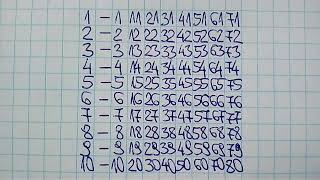 1 - 1 11 21 31 41 51 61 71
2 - 2 12 22 32 42 52 62 72
3 - 3 13 23 33 43 53 63 73
4 - 4 14 24 34 44 54 64 74
5 - 5 15 25 35 45 55 65 75
6 - 6 16 26 36 46 56 66 76
7 - 7 17 27 37 47 57 67 77
8 - 8 18 28 38 48 58 68 78
9 - 9 19 29 39 49 59 69 79
10 - 10 20 30 40 50 60 70 80